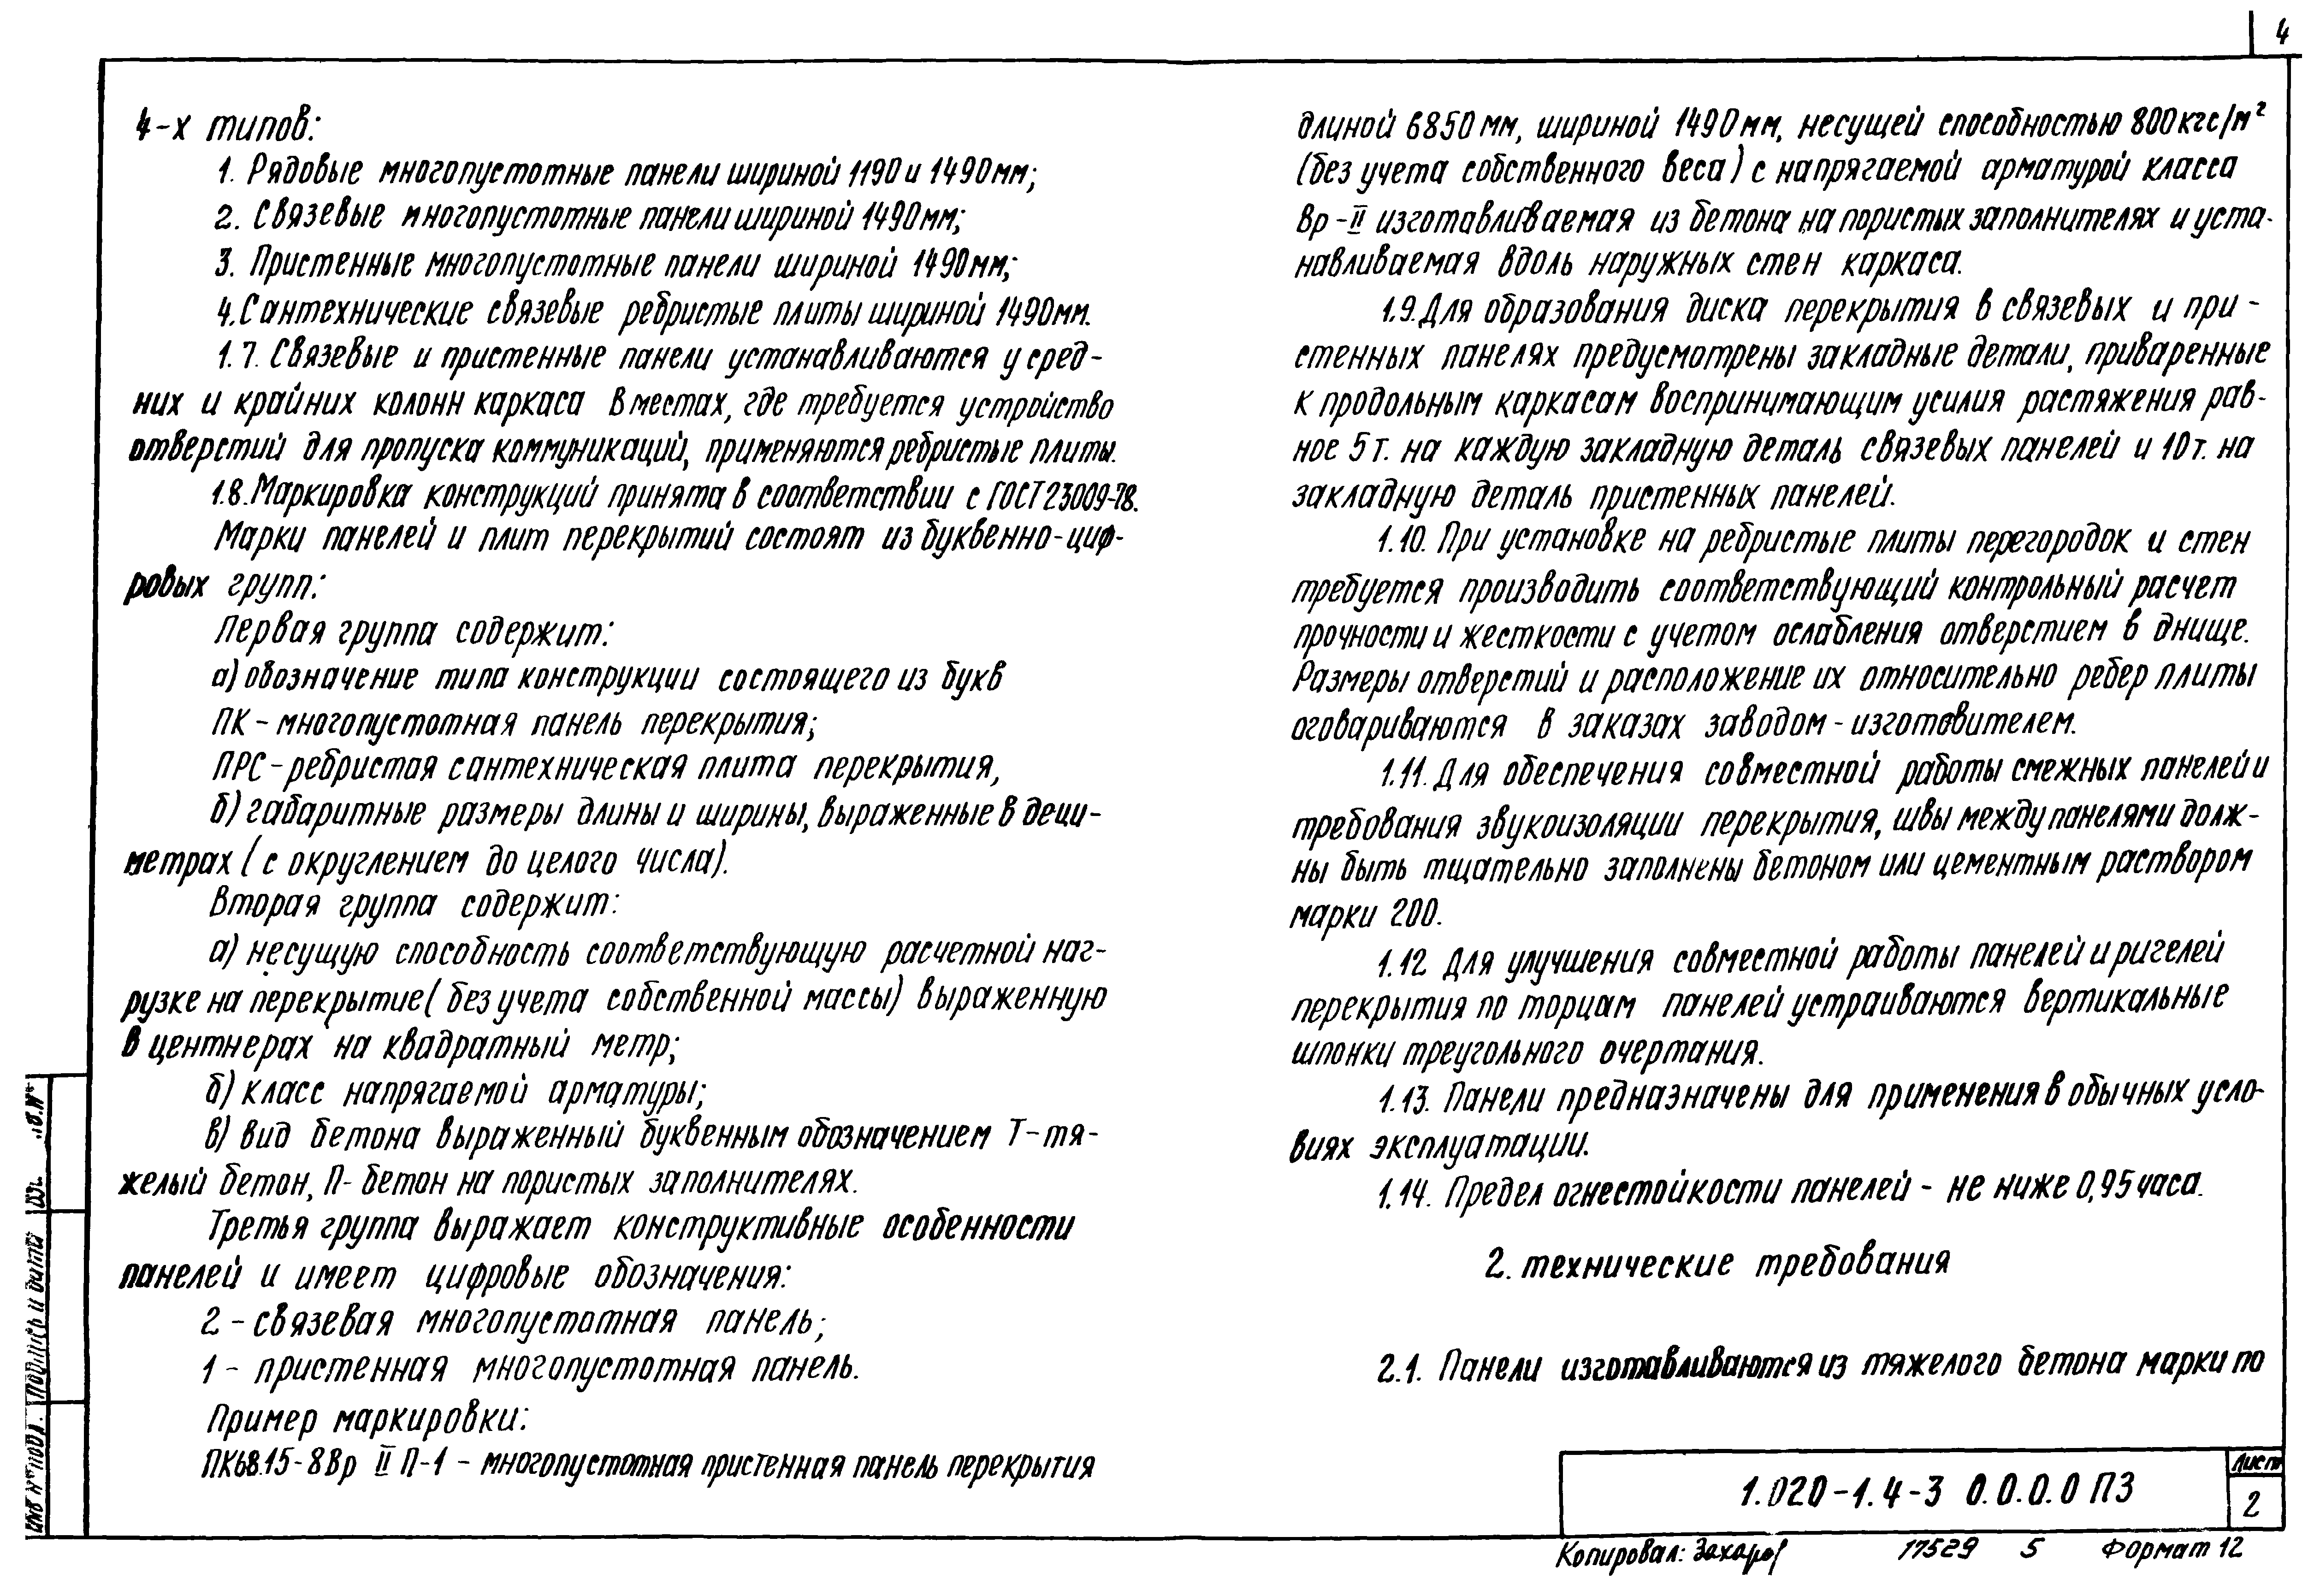 4
4-х типов:
1. Рядовые многопустотные панели шириной 1190 и 1490мм;
2. Связевые многопустотные панели шириной 1490мм;
3. Пристенные многопустотные панели шириной 1490мм;
4. Сантехнические связевые ребристые плиты шириной 1490мм.
1.7. Связевые и пристенные панели устанавливаются у сред-
них и крайних колонн каркаса в местах, где требуется устройство
отверстий для пропуска коммуникаций, применяются ребристые плиты.
1.8. Маркировка конструкций принята в соответствии с ГОСТ 23009-78.
Марки панелей и плит перекрытий состоят из буквенно-циф-
ровых групп:
Первая группа содержит:
а) обозначение типа конструкции состоящего из букв
ПК - многопустотная панель перекрытия;
ПРС - ребристая сантехническая плита перекрытия,
б) габаритные размеры длины и ширины, выраженные в деци-
метрах (с округлением до целого числа).
Вторая группа содержит:
а) несущую способность соответствующую расчетной наг-
рузке на перекрытие (без учета собственной массы) выраженную
в центнерах на квадратный метр;
б) класс напрягаемой арматуры;
в) вид бетона выраженный буквенным обозначением Т-тя-
желый бетон, П- бетон на пористых заполнителях.
Третья группа выражает конструктивные особенности
панелей и имеет цифровые обозначения:
2 - связевая многопустотная панель;
1 - пристенная многопустотная панель.
Пример маркировки:
ПК68.15-8Вр II П-1 - многопустотная пристенная панель перекрытия
длиной 6850 мм, шириной 1490мм, несущей способностью 800кгс/м²
(без учета собственного веса) с напрягаемой арматурой класса
Вр-II изготавливаемая из бетона на пористых заполнителях и уста-
навливаемая вдоль наружных стен каркаса.
1.9. Для образования диска перекрытия в связевых и при-
стенных панелях предусмотрены закладные детали, приваренные
к продольным каркасам воспринимающим усилия растяжения рав-
ное 5т. на каждую закладную деталь связевых панелей и 10т. на
закладную деталь пристенных панелей.
1.10. При установке на ребристые плиты перегородок и стен
требуется производить соответствующий контрольный расчет
прочности и жесткости с учетом ослабления отверстием в днище.
Размеры отверстий и расположение их относительно ребер плиты
оговариваются в заказах заводом-изготовителем.
1.11. Для обеспечения совместной работы смежных панелей и
требования звукоизоляции перекрытия, швы между панелями долж-
ны быть тщательно заполнены бетоном или цементным раствором
марки 200.
1.12 Для улучшения совместной работы панелей и ригелей
перекрытия по торцам панелей устраиваются вертикальные
шпонки треугольного очертания.
1.13. Панели предназначены для применения в обычных усло-
виях эксплуатации.
1.14. Предел огнестойкости панелей - не ниже 0,95 часа.
2. технические требования
2.1. Панели изготавливаются из тяжелого бетона марки по
1.020-1.4-3 0.0.0.0 ПЗ
Лист
2
Копировал: Захаров
17529 5 Формат 12
Инв № подл. Подпись и дата